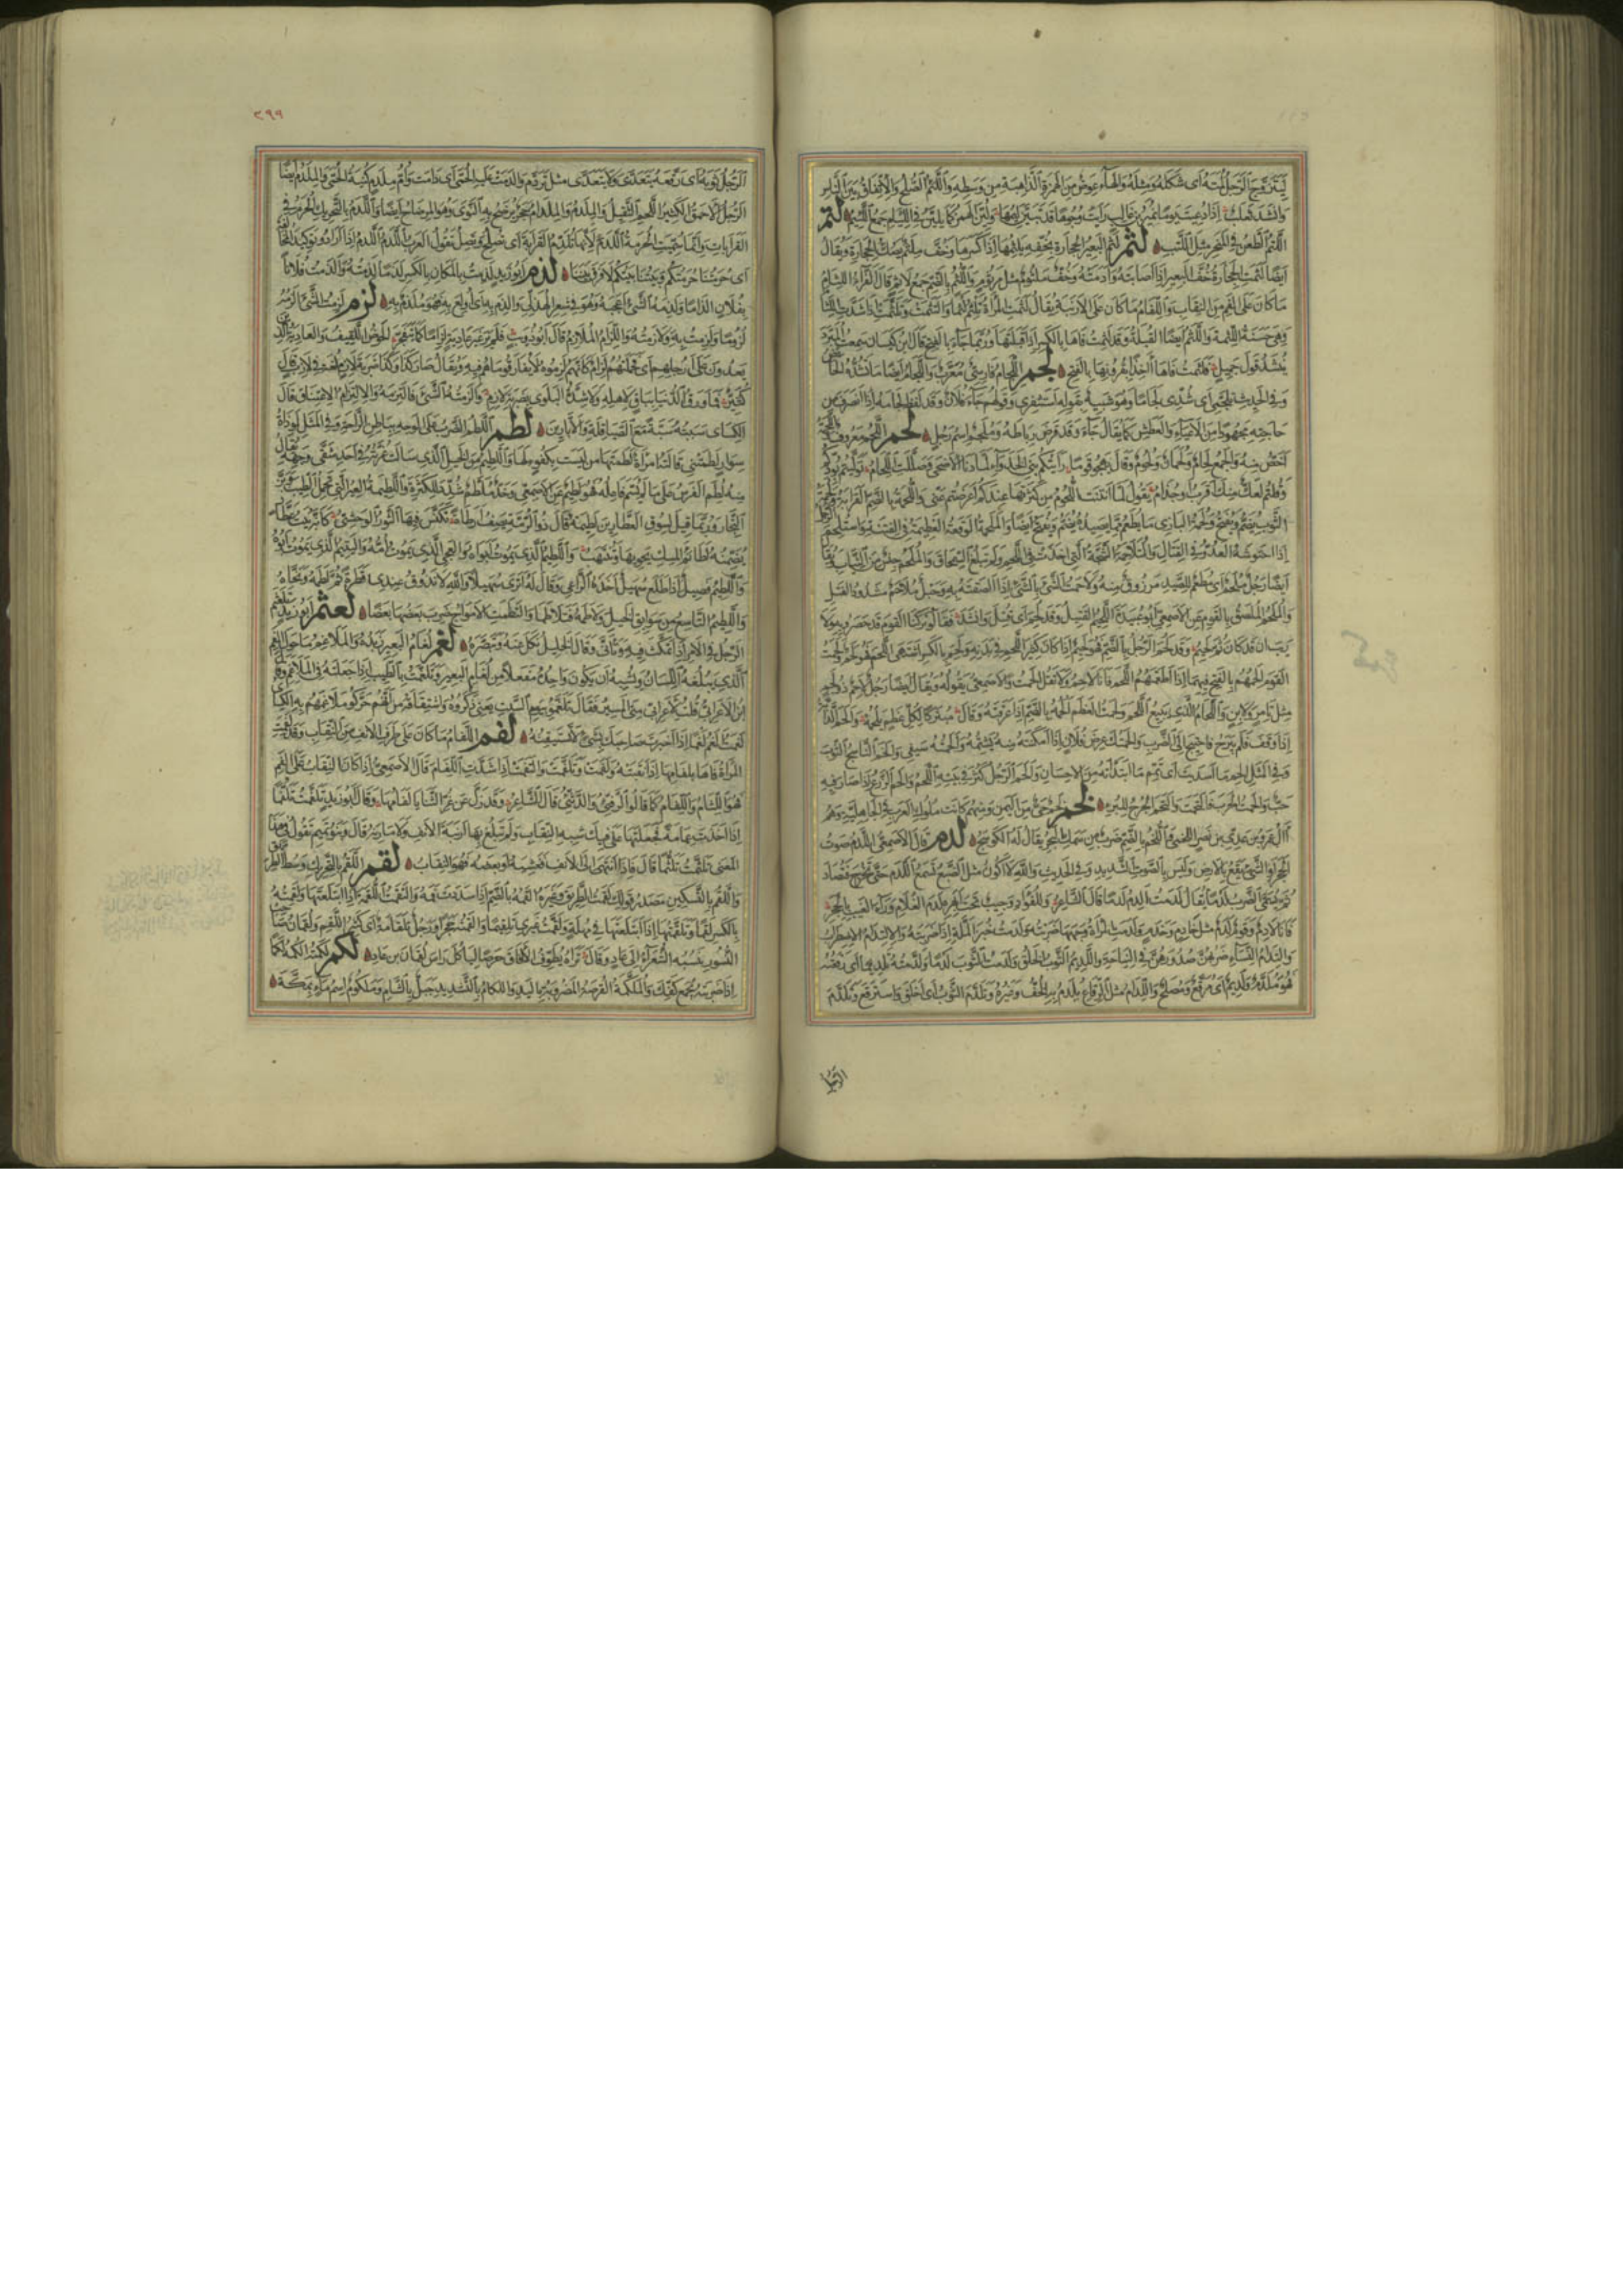 ليتزوج الرجل لمته اى شكله ومثله والهاء عوض من الهمزة الذاهبة من وسطه واللئم الصلح والاتفاق بين الناس
وانشد ثعلب اذا دعيت يوما نمير بن غالب رايت وجوها قد تبين ليمها ولين الهمز كما يلين فى اللئام جمع اللئيم لتم
اللتم الطعن فى المنحر مثل اللتب لثم لثم البعير الحجارة بخفه يلثمها اذا كسرها وخف ملثم يصك الحجارة ويقال
ايضا لثمت الحجارة خف البعير اذا اصابته وادمته وخف ملثوم مثل مرثوم واللثم بالضم جمع لاثم قال الفراء اللثام
ما كان على الفم من النقاب واللفام ما كان على الارنبة يقال لثمت المراة تلثم لثما والتثمت وتلثمت اذا شدت اللثام
وهى حسنة اللثمة واللثم ايضا القبلة وقد لثمت فاها بالكسر اذا قبلتها وربما جاء بالفتح قال ابن كيسان سمعت المبرد
ينشد قول جميل فلثمت فاها آخذا بقرونها بالفتح لجم اللجام فارسى معرب واللجام ايضا ما تشده الحائض
وفى الحديث تلجمى اى شدى لجاما وهو شبيه بقوله استثفرى وقولهم جاء فلان وقد لفظ لجامه اذا انصرف من
حاجته مجهودا من الاعياء والعطش كما يقال جاء وقد قرض رباطه وملجم اسم رجل لحم اللحم معروف واللحمة
اخص منه والجمع لحام ولحمان ولحوم وقال يهجو قوما رايتكم بنى الخذواء لما دنا الاضحى وصللت اللحام توليتم بودكم
وقلتم لعك منك اقرب او جذام يقول لما انتنت اللحوم من كثرتها عندكم اعرضتم عنى واللحمة بالضم القرابة ولحمة
الثوب يضم ويفتح ولحمة البازى ما يطعم مما يصيده يضم ويفتح ايضا والملحمة الوقعة العظيمة فى الفتنة واستلحم
اذا احتوشه العدو فى القتال والمتلاحمة الشجة التى اخذت فى اللحم ولم تبلغ السمحاق والملحم جنس من الثياب
ايضا رجل ملحم اى مطعم للصيد مرزوق منه ولاحمت الشئ بالشئ اذا الصقته به وحبل ملاحم مشدود الفتل
والملحم الملصق بالقوم عن الاصمعى ابو عبيدة اللحيم القتيل وقد لحم اى قتل وانشد فقالوا تركنا القوم قد حصروا به ولا
ريب ان قد كان ثم لحيم وقد لحم الرجل بالضم فهو لحيم اذا كان كثير اللحم فى بدنه ولحم بالكسر اشتهى اللحم فهو لحم ولحمت
القوم الحمهم بالفتح فيهما اذا اطعمتهم اللحم فانا لاحم ولا تقل الحمت والاصمعى يقوله ويقال ايضا رجل لاحم ذو لحم
مثل تامر ولابن واللحام الذى يبيع اللحم ولحمت العظم الحمه بالضم اذا عرقته وقال
اذا وقف فلم يبرح فاحتيج الى الضرب والحمتك عرض فلان اذا امكنته منه يشتمه والحمته سيفى والحم الناسج الثوب
وفى المثل الحم ما اسديت اى تمم ما ابتداته من الاحسان والحم الرجل كثر فى بيته اللحم والحم الزرع اذا صار فيه
حب والحمت الحرب فالتحمت والتحم الجرح للبرء لخم لخم حى من اليمن ومنهم كانت ملوك العرب فى الجاهلية وهم
آل عمرو بن عدى بن نصر اللخمى واللخم بالضم ضرب من سمك البحر يقال له الكوسج لدم قال الاصمعى اللدم صوت
الحجر او الشئ يقع بالارض وليس بالصوت الشديد وفى الحديث والله لا اكون مثل الضبع تسمع اللدم حتى تخرج فتصاد
ثم يسمى الضرب لدما يقال لدمت الدم لدما قال الشاعر وللفؤاد وجيب تحت ابهره لدم الغلام وراء الغيب بالحجر
فانا لادم وقوم لدم مثل خادم وخدم ولدمت المراة وجهها ضربته ولدمت خبز الملة اذا ضربته والالتدام الاضطراب
والتدام النساء ضربهن صدورهن فى النياحة واللديم الثوب الخلق ولدمت الثوب لدما ولدمته تلديما اى رقعته
فهو ملدم ولديم اى مرقع ومصلح واللدام مثل الرقاع يلدم به الخف وغيره وتلدم الثوب اى اخلق واسترقع وتلدم
الرجل
٢٩٩
الرجل ثوبه اى رقعه يتعدى ولا يتعدى مثل تردم والدمت عليه الحمى اى دامت وام ملدم كنية الحمى والملدم ايضا
الرجل الاحمق الكثير اللحم الثقيل والملدم والملدام حجر يرضخ به النوى وهو المرضاخ ايضا واللدم بالتحريك الحرم فى
القرابات وانما سميت الحرمة اللدم لانها تلدم القرابة اى تصلح وتصل تقول العرب اللدم اللدم اذا ارادوا توكيد المحالفة
اى حرمتنا حرمتكم وبيتنا بيتكم لا فرق بيننا لذم ابو زيد لذمت بالمكان بالكسر لذما لزمته والذمت فلانا
بفلان الذاما ولذمه الشئ اعجبه وهو فى شعر الهذلى والذم به اى اولع به فهو ملذم به لزم لزمت الشئ الزمه
لزوما ولزمت به ولازمته واللزام الملازم قال ابو ذؤيب فلم ير غير عادية لزاما كما يتفجر الحوض اللقيف والعادية الذين
يعدون على ارجلهم اى فحملتهم لزام كانهم لزموه لا يفارقون ما هم فيه ويقال صار كذا وكذا ضربة لازم لغة فى لازب قال
كثير فما ورق الدنيا بباق لاهله ولا شدة البلوى بضربة لازم والزمته الشئ فالتزمه والالتزام الاعتناق قال
الكسائى سببته سبة تمنع الصياقلة والابارين لطم اللطم الضرب على الوجه بباطن الراحة وفى المثل لو ذات
سوار لطمتنى قالت امراة لطمتها من ليست بكفو لها واللطيم من الخيل الذى سالت غرته فى احد شقى وجهه يقال
منه لطم الفرس على ما لم يسم فاعله فهو لطيم عن الاصمعى وخد ملطم شدد للكثرة واللطيمة العير التى تحمل الطيب وبز
التجار وربما قيل لسوق العطارين لطيمة قال ذو الرمة يصف ارطاة تكنس فيها الثور الوحشى كانها بيت عطار
يضمنه لطائم المسك يحويها وتنتهب واللطيم الذى يموت ابواه والعجى الذى يموت امه واليتيم الذى يموت ابوه
واللطيم فصيل اذا طلع سهيل اخذه الراعى وقال له اترى سهيلا والله لا تذوق عندى قطرة ثم لطمه ونحاه
واللطيم التاسع من سوابق الخيل ولاطمه فتلاطما والتطمت الامواج ضرب بعضها بعضا لعثم ابو زيد تلعثم
الرجل فى الامر اذا تمكث فيه وتانى وقال الخليل نكل عنه وتبصره لغم لغام البعير زبده والملاغم ما حول الفم
الذى يبلغه اللسان ويشبه ان يكون واحده مفعلا من لغام البعير وتلغمت بالطيب اذا جعلته فى الملاغم
ابن الاعرابى قلت لاعرابى متى المسير فقال تلغموا بيوم السبت يعنى ذكروه واشتقاقه من انهم حركوا ملاغمهم به الكسائى
لغمت الغم لغما اذا اخبرت صاحبك بشئ لا تستيقنه لفم اللفام ما كان على طرف الانف من النقاب وقد لفمت
المراة فاها بلفامها اذا نقبته ولفمت وتلفمت والتفمت اذا شدت اللفام قال الاصمعى اذا كان النقاب على الفم
فهو اللثام واللفام كما قالوا الدفئى والدثئى قال الشاعر وقد زل عن غر الثنايا لفامها وقال ابو زيد تلفمت تلفما
اذا اخذت عمامة فجعلتها على فيك شبه النقاب ولم تبلغ بها ارنبة الانف ولا مارنه قال وبنو تميم تقول فى هذا
المعنى تلثمت تلثما قال فاذا انتهى الى الانف فغشيه او بعضه فهو النقاب لقم اللقم بالتحريك وسط الطريق
واللقم بالتسكين مصدر قولك لقمت الطريق وغيره القمه بالضم اذا سددت فمه والتقمت اللقمة اذا ابتلعتها ولقمتها
بالكسر لقما وتلقمتها اذا ابتلعتها فى مهلة ولقمت غيرى تلقيما والقمته حجرا ورجل تلقامة اى كثير اللقم ولقمان صاحب
النسور ينسبه الشعراء الى عاد وقال تراه يطوف الآفاق حرصا لياكل راس لقمان بن عاد لكم لكمته الكمه لكما
اذا ضربته بجمع كفك والملكمة القرصة المضروبة باليد واللكام بالتشديد جبل بالشام وملكوم اسم ماء بمكة